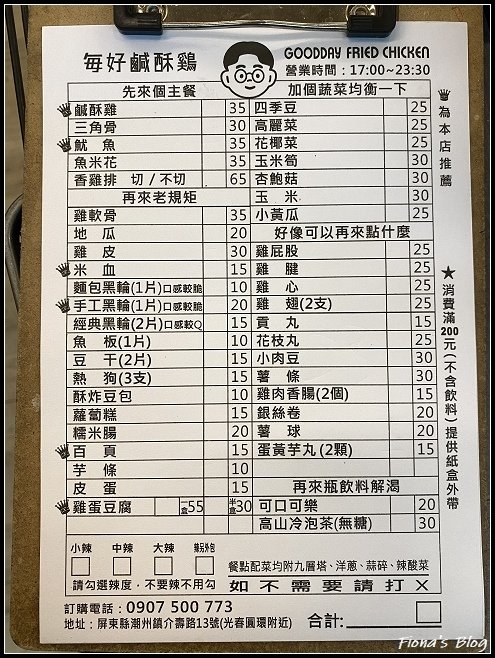 每好鹹酥鷄
GOODDAY FRIED CHICKEN
營業時間：17:00~23:30
先來個主餐
鹹酥雞 35
三角骨 30
魷魚 35
魚米花 35
香雞排 切/不切 65
再來老規矩
雞軟骨 35
地瓜 20
雞皮 30
米血 15
麵包黑輪(1片)口感較脆 10
手工黑輪(1片)口感較脆 20
經典黑輪(2片)口感較Q 15
魚板(1片) 10
豆干(2片) 15
熱狗(3支) 15
酥炸豆包 10
蘿蔔糕 15
糯米腸 20
百頁 15
芋條 10
皮蛋 15
雞蛋豆腐 一盒55 半盒30
加個蔬菜均衡一下
四季豆 25
高麗菜 25
花椰菜 25
玉米筍 30
杏鮑菇 30
玉米 30
小黃瓜 25
好像可以再來點什麼
雞屁股 25
雞腱 25
雞心 25
雞翅(2支) 25
貢丸 15
花枝丸 25
小肉豆 30
薯條 30
雞肉香腸(2個) 15
銀絲卷 20
薯球 20
蛋黃芋丸(2顆) 15
再來瓶飲料解渴
可口可樂 20
高山冷泡茶(無糖) 30
為本店推薦
★消費滿200元(不含飲料)提供紙盒外帶
小辣 中辣 大辣 辣另外包
請勾選辣度，不要辣不用勾
餐點配菜均附九層塔、洋蔥、蒜碎、辣酸菜
如不需要請打X
訂購電話：0907 500 773
地址：屏東縣潮州鎮介壽路13號(光春圓環附近)
合計：
Fiona's Blog